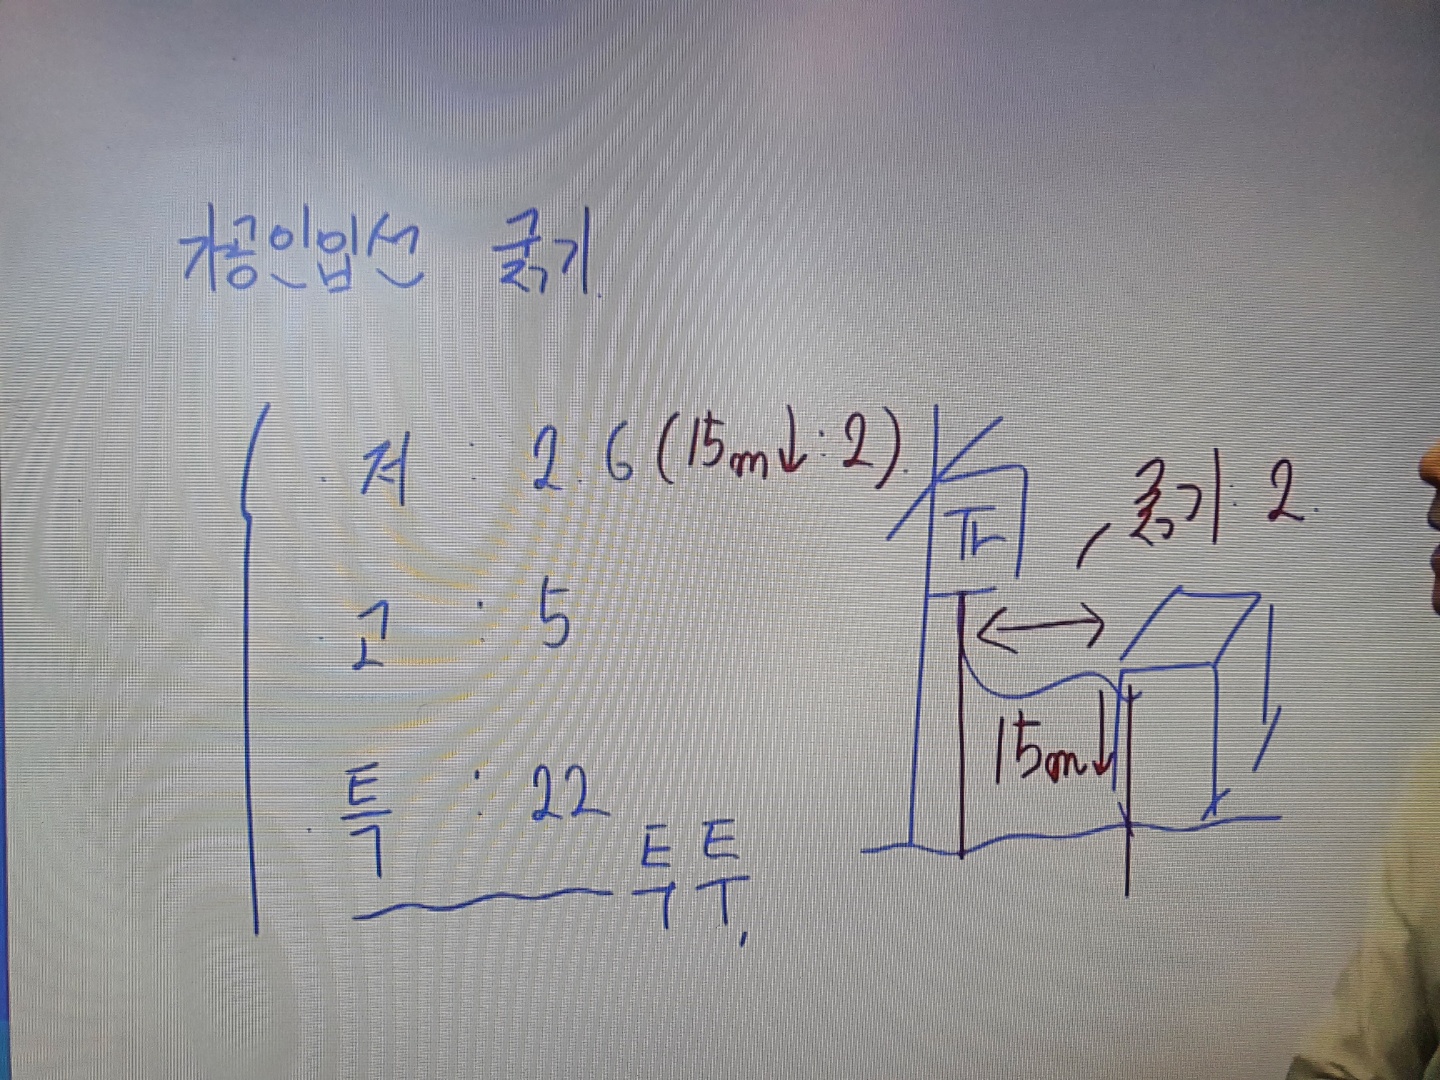 가공인입선 굵기.
저 : 2.6 (15m↓:2).
고 : 5
특 : 22
특 특,
TR
굵기: 2.
15m↓